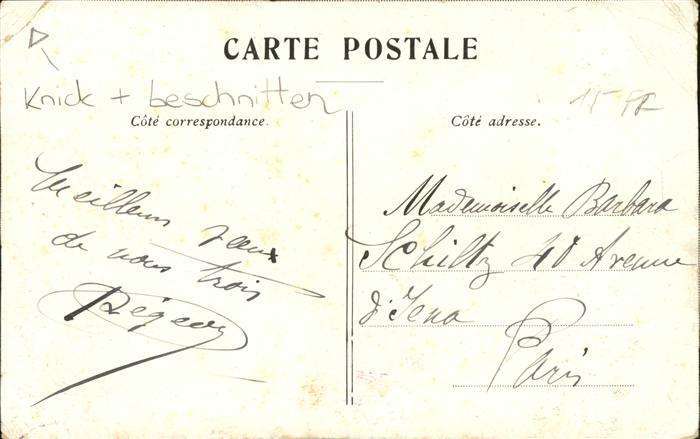 CARTE POSTALE
Knick + beschnitten
15 FR
Côté correspondance.
Côté adresse.
Meilleurs vœux
de nous trois
Mademoiselle Barbara
Schiltz 40 Avenue
d'Iena
Paris